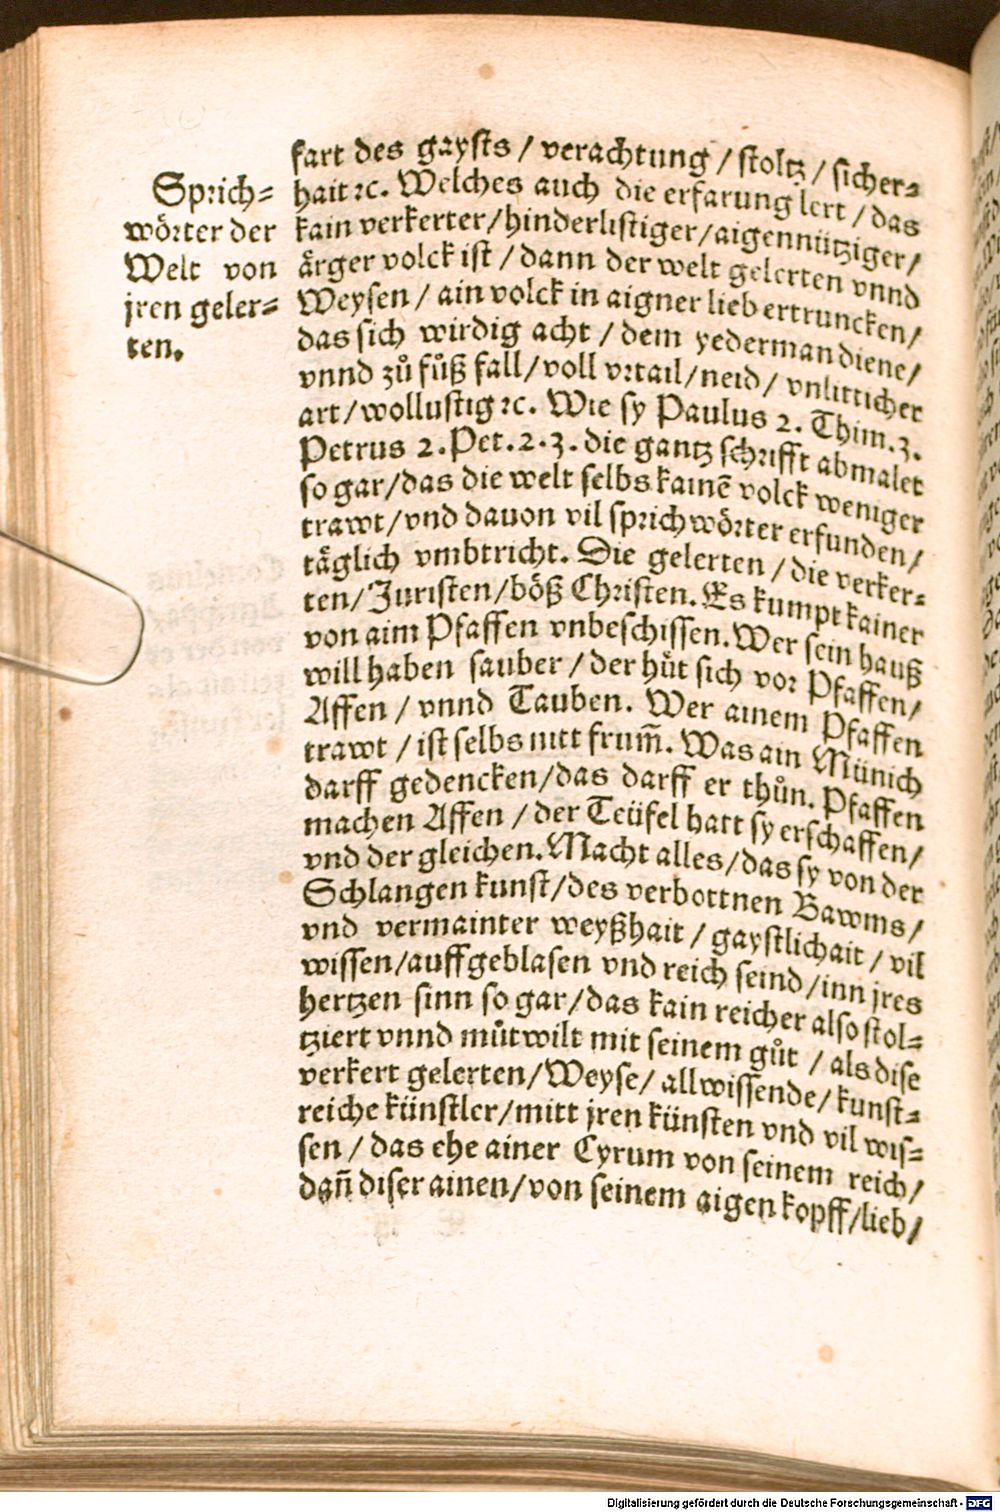 Sprich⸗
wörter der
Welt von
jren geler⸗
ten.
fart des gaysts / verachtung / stoltz / sicher⸗
hait ⁊c. Welches auch die erfarung lert / das
kain verkerter / hinderlistiger / aigennütziger /
ärger volck ist / dann der welt gelerten vnnd
Weysen / ain volck in aigner lieb ertruncken /
das sich wirdig acht / dem yederman diene /
vnnd zů fůß fall / voll vrtail / neid / vnsitticher
art / wollustig ⁊c. Wie sy Paulus 2. Thim. 3.
Petrus 2. Pet. 2. 3. die gantz schrifft abmalet
so gar / das die welt selbs kainē volck weniger
trawt / vnd dauon vil sprichwörter erfunden /
täglich vmbtricht. Die gelerten / die verker⸗
ten / Juristen / böß Christen. Es kumpt kainer
von aim Pfaffen vnbeschissen. Wer sein hauß
will haben sauber / der hůt sich vor Pfaffen /
Affen / vnnd Tauben. Wer ainem Pfaffen
trawt / ist selbs nitt frum̄. Was ain Münich
darff gedencken / das darff er thůn. Pfaffen
machen Affen / der Teüfel hatt sy erschaffen /
vnd der gleichen. Macht alles / das sy von der
Schlangen kunst / des verbottnen Bawms /
vnd vermainter weyßhait / gaystlichait / vil
wissen / auffgeblasen vnd reich seind / inn jres
hertzen sinn so gar / das kain reicher also stol⸗
tziert vnnd můtwilt mit seinem gůt / als dise
verkert gelerten / Weyse / allwissende / kunst⸗
reiche künstler / mitt jren künsten vnd vil wis⸗
sen / das ehe ainer Cyrum von seinem reich /
dan̄ diser ainen / von seinem aigen kopff / lieb /
Digitalisierung gefördert durch die Deutsche Forschungsgemeinschaft - DFG